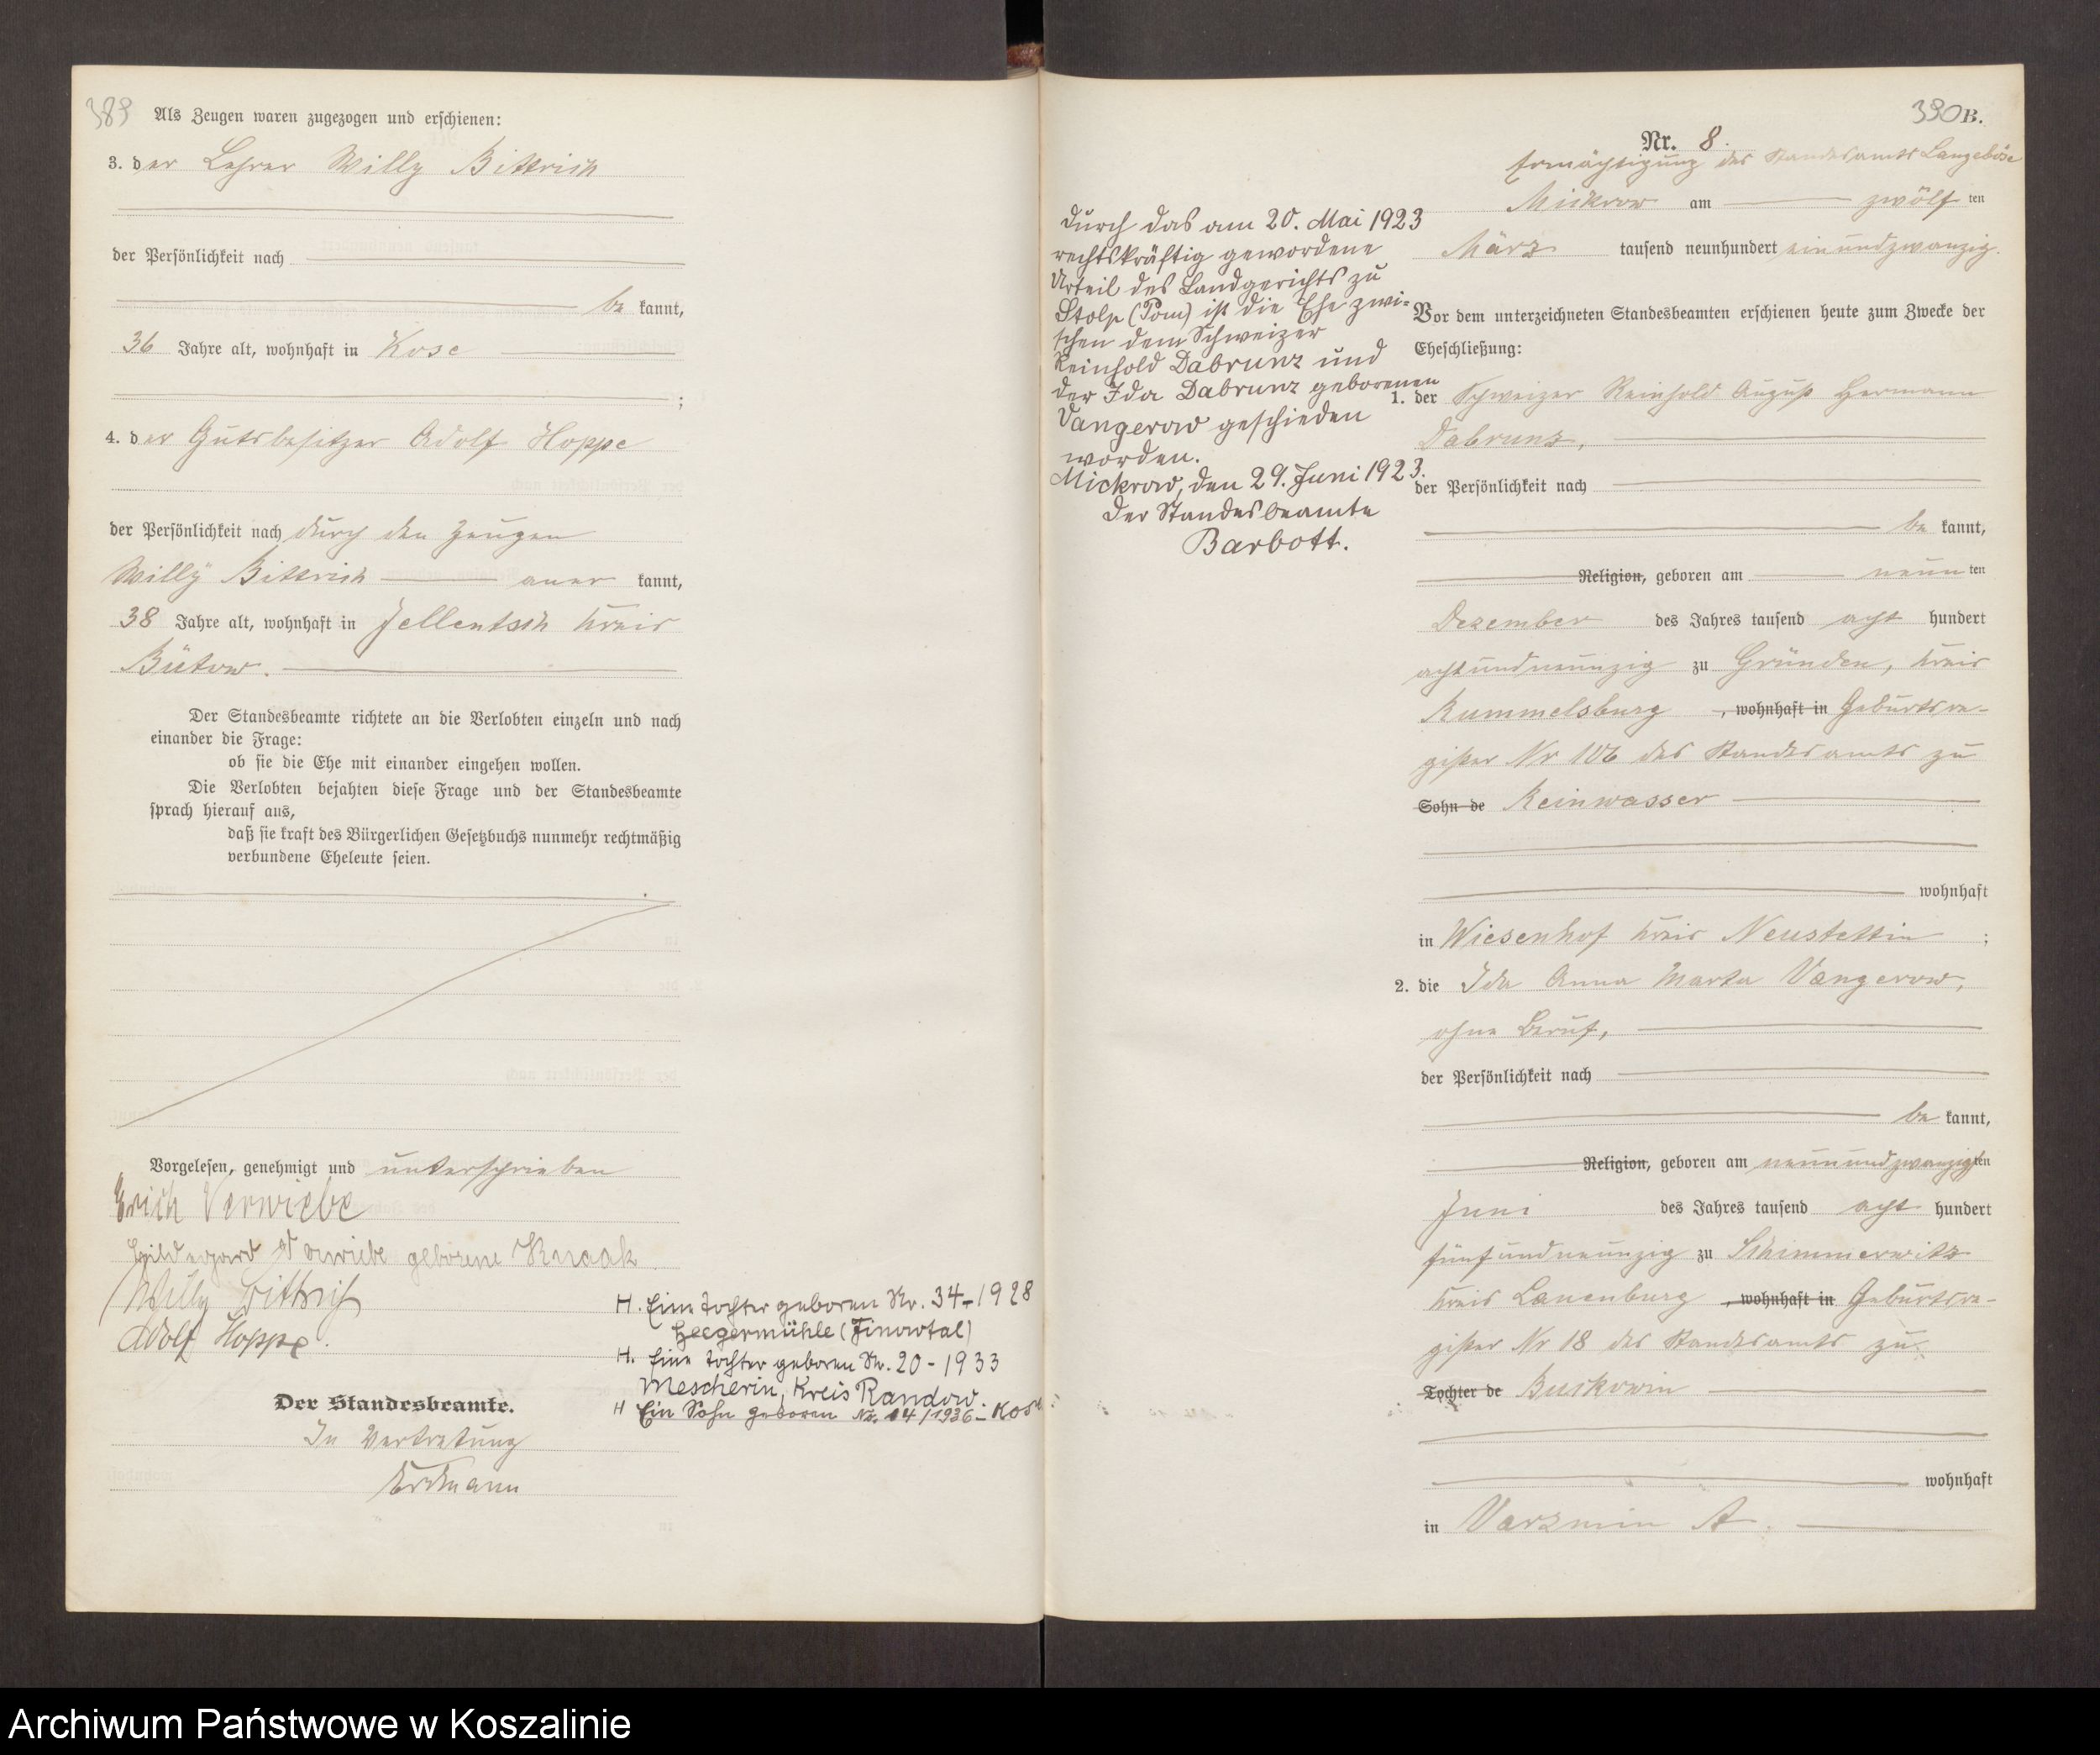 389
Als Zeugen waren zugezogen und erschienen:
3. der Lehrer Willy Bittrich
der Persönlichkeit nach
be kannt,
36 Jahre alt, wohnhaft in Kose
;
4. der Gutsbesitzer Adolf Hoppe
der Persönlichkeit nach durch den Zeugen
Willy Bittrich aner kannt,
38 Jahre alt, wohnhaft in Jellentsch Kreis
Bütow.
Der Standesbeamte richtete an die Verlobten einzeln und nach
einander die Frage:
ob sie die Ehe mit einander eingehen wollen.
Die Verlobten bejahten diese Frage und der Standesbeamte
sprach hierauf aus,
daß sie kraft des Bürgerlichen Gesetzbuchs nunmehr rechtmäßig
verbundene Eheleute seien.
Vorgelesen, genehmigt und unterschrieben
Erich Verwiebe
Hildegard Verwiebe geborene Knaak
Willy Bittrich
Adolf Hoppe.
Der Standesbeamte.
In Vertretung
Erdmann
H. Eine Tochter geboren Nr. 34-1928
Heegermühle (Finowtal)
H. Eine Tochter geboren Nr. 20-1933
Mescherin, Kreis Randow.
H Ein Sohn geboren Nr. 14/1936 - Kose
390 B.
Nr. 8.
Ermächtigung des Standesamts Langeböse
Mickrow am zwölf ten
März tausend neunhundert einundzwanzig.
Vor dem unterzeichneten Standesbeamten erschienen heute zum Zwecke der
Eheschließung:
1. der Schweizer Reinhold August Hermann
Dabrunz,
der Persönlichkeit nach
be kannt,
Religion, geboren am neun ten
Dezember des Jahres tausend acht hundert
achtundneunzig zu Gründen, Kreis
Rummelsburg , wohnhaft in Geburtsre-
gister Nr 106 des Standesamts zu
Sohn de Reinwasser
wohnhaft
in Wiesenhof Kreis Neustettin ;
2. die Ida Anna Marta Vangerow,
ohne Beruf,
der Persönlichkeit nach
be kannt,
Religion, geboren am neunundzwanzigsten
Juni des Jahres tausend acht hundert
fünfundneunzig zu Schimmerwitz
Kreis Lauenburg , wohnhaft in Geburtsre-
gister Nr 18 des Standesamts zu
Tochter de Buckowin
wohnhaft
in Varzmin A.
Durch das am 20. Mai 1923
rechtskräftig gewordene
Urteil des Landgerichts zu
Stolp (Pom) ist die Ehe zwi-
schen dem Schweizer
Reinhold Dabrunz und
der Ida Dabrunz geborenen
Vangerow geschieden
worden.
Mickrow, den 29. Juni 1923.
Der Standesbeamte
Barbott.
Archiwum Państwowe w Koszalinie